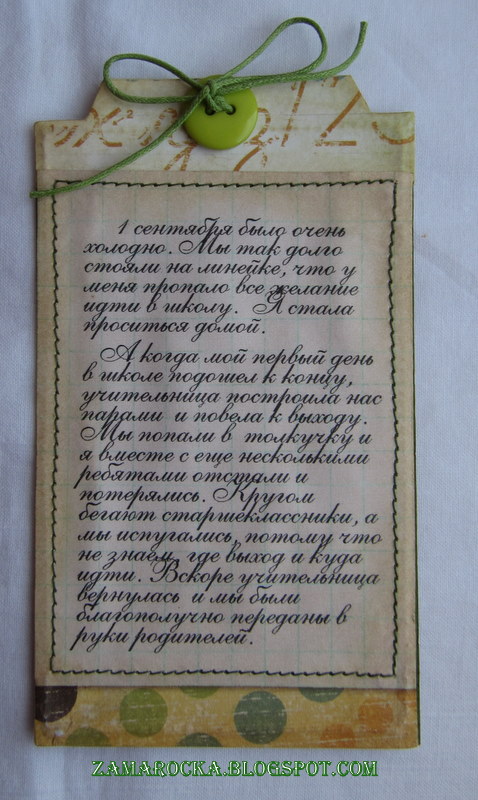 1 сентября было очень
холодно. Мы так долго
стояли на линейке, что у
меня пропало все желание
идти в школу. Я стала
проситься домой.
А когда мой первый день
в школе подошел к концу,
учительница построила нас
парами и повела к выходу.
Мы попали в толкучку и
я вместе с еще несколькими
ребятами отстали и
потерялись. Кругом
бегают старшеклассники, а
мы испугались, потому что
не знаем, где выход и куда
идти. Вскоре учительница
вернулась и мы были
благополучно переданы в
руки родителей.
ZAMAROCKA.BLOGSPOT.COM